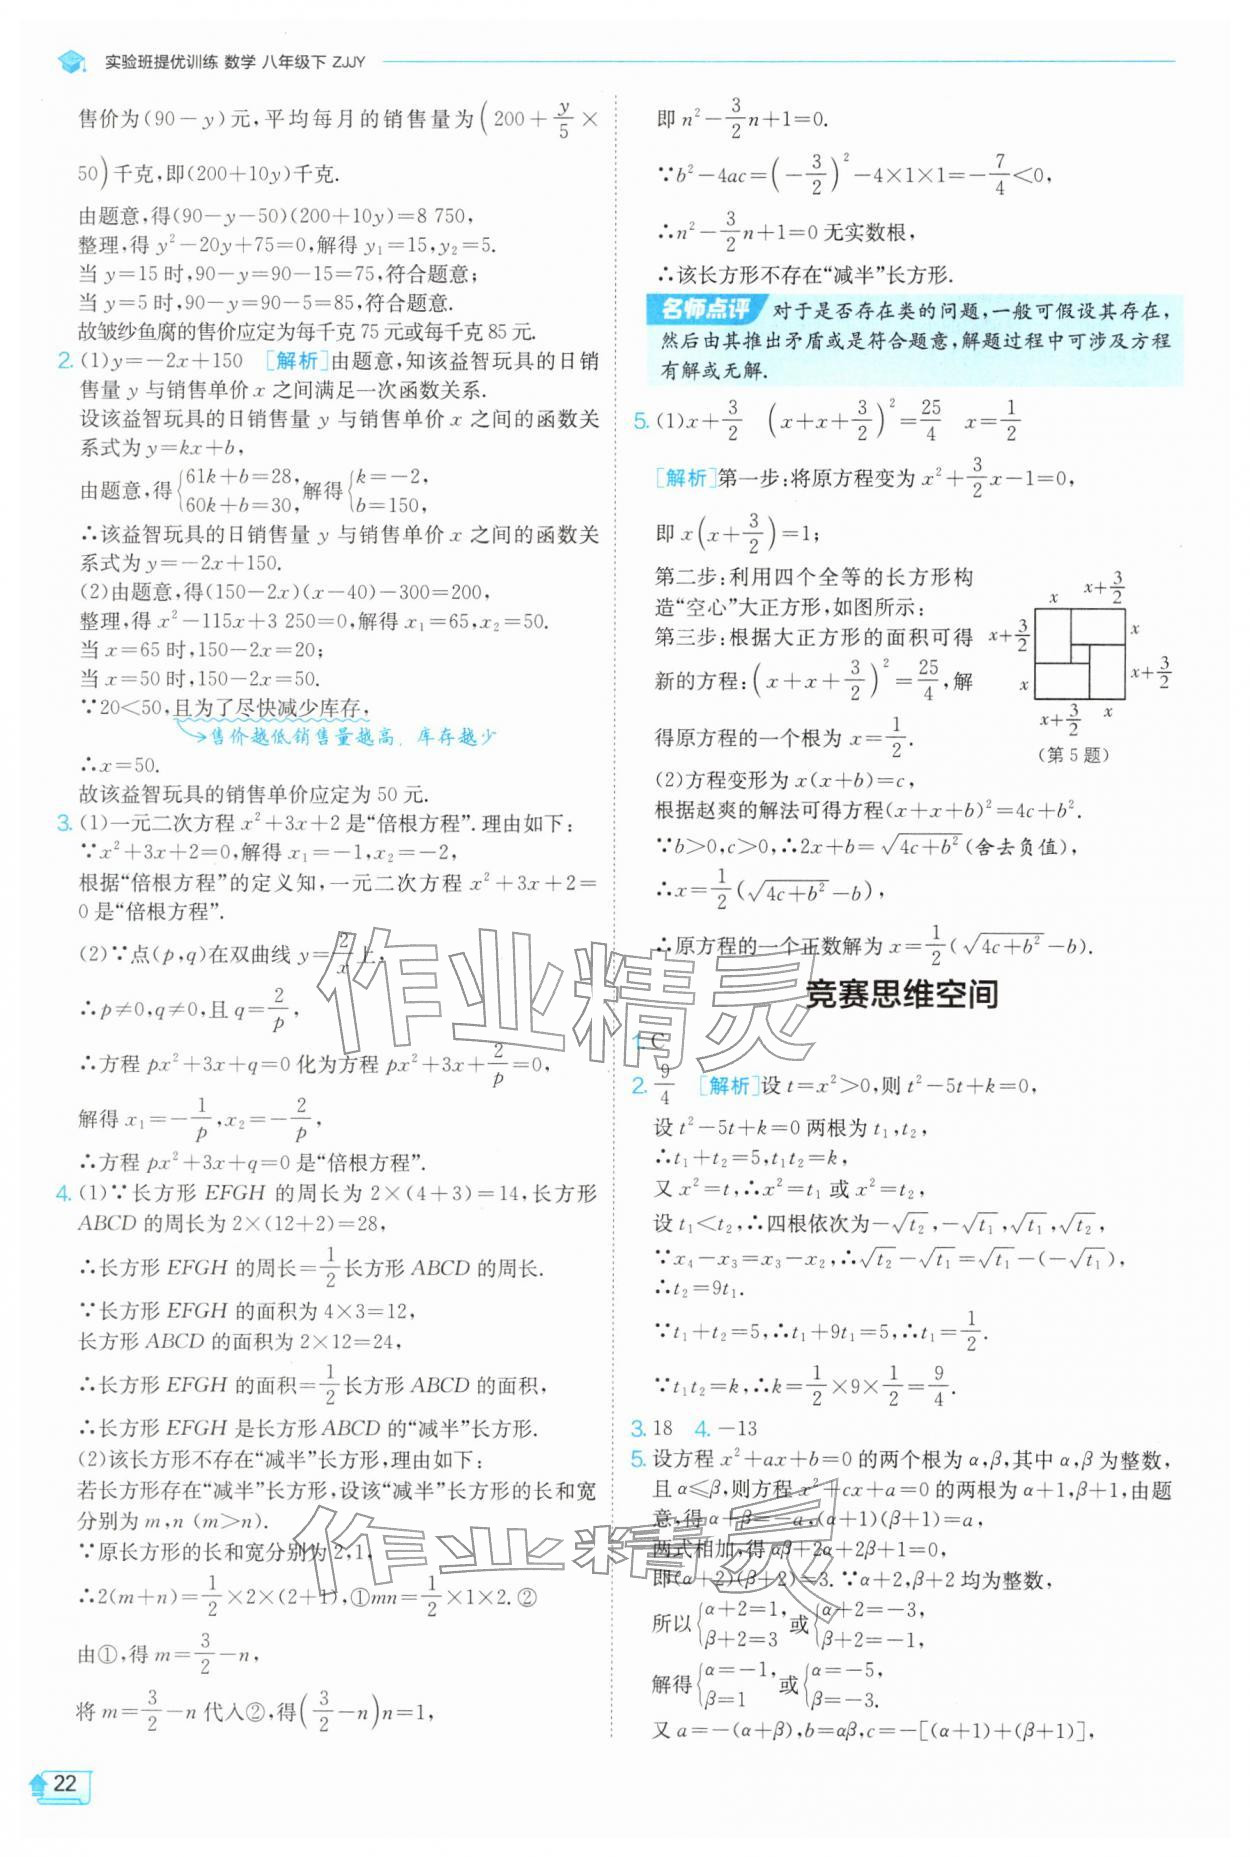 实验班提优训练 数学 八年级下 ZJJY
售价为(90-y)元,平均每月的销售量为(200+y/5×
50)千克,即(200+10y)千克.
由题意,得(90-y-50)(200+10y)=8 750,
整理,得 y²-20y+75=0,解得 y₁=15,y₂=5.
当 y=15 时,90-y=90-15=75,符合题意;
当 y=5 时,90-y=90-5=85,符合题意.
故皱纱鱼腐的售价应定为每千克 75 元或每千克 85 元.
2. (1)y=-2x+150 [解析]由题意,知该益智玩具的日销
售量 y 与销售单价 x 之间满足一次函数关系.
设该益智玩具的日销售量 y 与销售单价 x 之间的函数关
系式为 y=kx+b,
由题意,得{61k+b=28, 60k+b=30, 解得{k=-2, b=150,
∴该益智玩具的日销售量 y 与销售单价 x 之间的函数关
系式为 y=-2x+150.
(2)由题意,得(150-2x)(x-40)-300=200,
整理,得 x²-115x+3 250=0,解得 x₁=65,x₂=50.
当 x=65 时,150-2x=20;
当 x=50 时,150-2x=50.
∵20<50,且为了尽快减少库存,
售价越低销售量越高,库存越少
∴x=50.
故该益智玩具的销售单价应定为 50 元.
3. (1)一元二次方程 x²+3x+2 是“倍根方程”.理由如下:
∵x²+3x+2=0,解得 x₁=-1,x₂=-2,
根据“倍根方程”的定义知,一元二次方程 x²+3x+2=
0 是“倍根方程”.
(2)∵点(p,q)在双曲线 y=2/x 上,
∴p≠0,q≠0,且 q=2/p,
∴方程 px²+3x+q=0 化为方程 px²+3x+2/p=0,
解得 x₁=-1/p,x₂=-2/p,
∴方程 px²+3x+q=0 是“倍根方程”.
4. (1)∵长方形 EFGH 的周长为 2×(4+3)=14,长方形
ABCD 的周长为 2×(12+2)=28,
∴长方形 EFGH 的周长=1/2长方形 ABCD 的周长.
∵长方形 EFGH 的面积为 4×3=12,
长方形 ABCD 的面积为 2×12=24,
∴长方形 EFGH 的面积=1/2长方形 ABCD 的面积,
∴长方形 EFGH 是长方形 ABCD 的“减半”长方形.
(2)该长方形不存在“减半”长方形,理由如下:
若长方形存在“减半”长方形,设该“减半”长方形的长和宽
分别为 m,n (m>n).
∵原长方形的长和宽分别为 2,1,
∴2(m+n)=1/2×2×(2+1),①mn=1/2×1×2.②
由①,得 m=3/2-n,
将 m=3/2-n 代入②,得(3/2-n)n=1,
22
即 n²-3/2n+1=0.
∵b²-4ac=(-3/2)²-4×1×1=-7/4<0,
∴n²-3/2n+1=0 无实数根,
∴该长方形不存在“减半”长方形.
名师点评 对于是否存在类的问题,一般可假设其存在,
然后由其推出矛盾或是符合题意,解题过程中可涉及方程
有解或无解.
5. (1)x+3/2 (x+x+3/2)²=25/4 x=1/2
[解析]第一步:将原方程变为 x²+3/2x-1=0,
即 x(x+3/2)=1;
第二步:利用四个全等的长方形构
造“空心”大正方形,如图所示:
第三步:根据大正方形的面积可得
新的方程:(x+x+3/2)²=25/4,解
得原方程的一个根为 x=1/2.
x x+3/2
x+3/2 x
x x+3/2
x+3/2 x
(第 5 题)
(2)方程变形为 x(x+b)=c,
根据赵爽的解法可得方程(x+x+b)²=4c+b².
∵b>0,c>0,∴2x+b=√(4c+b²)(舍去负值),
∴x=1/2(√(4c+b²)-b),
∴原方程的一个正数解为 x=1/2(√(4c+b²)-b).
竞赛思维空间
1. C
2. 9/4 [解析]设 t=x²>0,则 t²-5t+k=0,
设 t²-5t+k=0 两根为 t₁,t₂,
∴t₁+t₂=5,t₁t₂=k,
又 x²=t,∴x²=t₁ 或 x²=t₂,
设 t₁<t₂,∴四根依次为-√t₂,-√t₁,√t₁,√t₂,
∵x₄-x₃=x₃-x₂,∴√t₂-√t₁=√t₁-(-√t₁),
∴t₂=9t₁.
∵t₁+t₂=5,∴t₁+9t₁=5,∴t₁=1/2.
∵t₁t₂=k,∴k=1/2×9×1/2=9/4.
3. 18 4. -13
5. 设方程 x²+ax+b=0 的两个根为 α,β,其中 α,β 为整数,
且 α≤β,则方程 x²+cx+a=0 的两根为 α+1,β+1,由题
意,得 α+β=-a,(α+1)(β+1)=a,
两式相加,得 αβ+2α+2β+1=0,
即(α+2)(β+2)=3.∵α+2,β+2 均为整数,
所以{α+2=1, β+2=3 或{α+2=-3, β+2=-1,
解得{α=-1, β=1 或{α=-5, β=-3.
又 a=-(α+β),b=αβ,c=-[(α+1)+(β+1)],
作业精灵
作业精灵